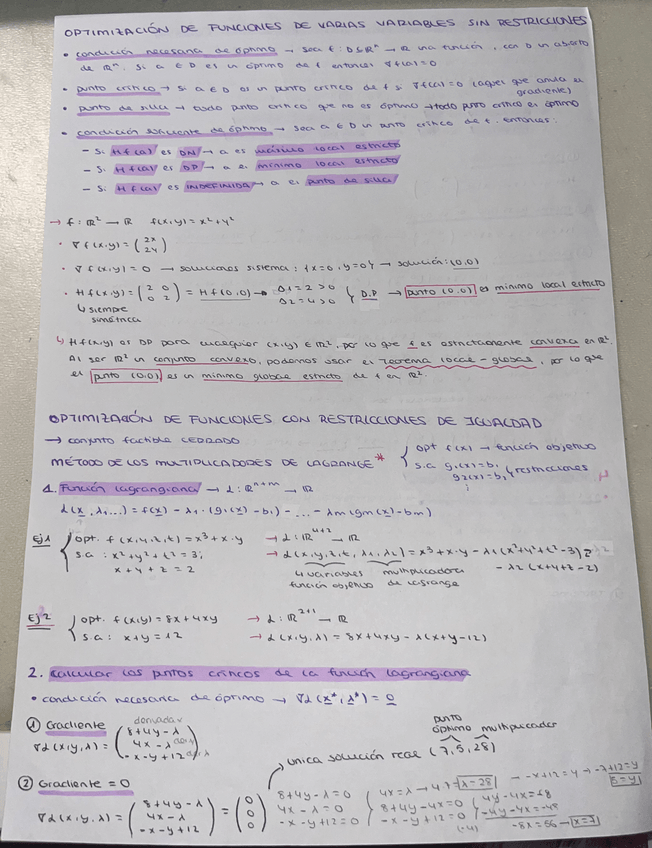 OPTIMIZACIÓN DE FUNCIONES DE VARIAS VARIABLES SIN RESTRICCIONES
• condición necesaria de óptimo → sea f: D⊆ℝⁿ → ℝ una función, con D un abierto
de ℝⁿ. Si a ∈ D es un óptimo de f entonces ∇f(a)=0
• punto crítico → si a ∈ D es un punto crítico de f si ∇f(a)=0 (aquel que anula el
gradiente)
• punto de silla → todo punto crítico que no es óptimo → todo punto crítico es óptimo
• condición suficiente de óptimo → sea a ∈ D un punto crítico de f. entonces:
– Si Hf(a) es DN → a es máximo local estricto
– Si Hf(a) es DP → a es mínimo local estricto
– Si Hf(a) es INDEFINIDA → a es punto de silla
→ f: ℝ² → ℝ f(x,y)=x²+y²
• ∇f(x,y)=(2x 2y)
• ∇f(x,y)=0 → soluciones sistema: {x=0, y=0} → solución: (0,0)
• Hf(x,y)=(2 0 0 2) = Hf(0,0) → Δ1=2>0 Δ2=4>0 } D.P → punto (0,0) es mínimo local estricto
↳ siempre simétrica
↳ Hf(x,y) es DP para cualquier (x,y) ∈ ℝ², por lo que f es estrictamente convexa en ℝ².
Al ser ℝ² un conjunto convexo, podemos usar el teorema local-global, por lo que
el punto (0,0) es un mínimo global estricto de f en ℝ².
OPTIMIZACIÓN DE FUNCIONES CON RESTRICCIONES DE IGUALDAD
→ conjunto factible CERRADO
MÉTODO DE LOS MULTIPLICADORES DE LAGRANGE *
{ opt f(x) → función objetivo
s.a g₁(x)=b₁
g₂(x)=b₁ } restricciones
⋮
1. Función lagrangiana → L: ℝⁿ⁺ᵐ → ℝ
L(x, λ₁...) = f(x) – λ₁·(g₁(x)–b₁) – ... – λm(gm(x)–bm)
Ej1 { opt. f(x,y,z,t)=x³+x·y → L: ℝ⁴⁺² → ℝ
s.a: x²+y²+t²=3; → L(x,y,z,t, λ₁,λ₂)=x³+x·y–λ₁(x²+y²+t²–3)
x+y+z=2 – λ2(x+y+z–2)
4 variables función objetivo multiplicadores de lagrange
Ej2 { opt. f(x,y)=8x+4xy → L: ℝ²⁺¹ → ℝ
s.a: x+y=12 → L(x,y,λ)=8x+4xy–λ(x+y–12)
2. Calcular los puntos críticos de la función lagrangiana
• condición necesaria de óptimo → ∇L(x*, λ*)=0
① Gradiente
derivadas
∇L(x,y,λ)=(8+4y–λ 4x–λ –x–y+12)
punto óptimo multiplicador
única solución real (7,5,28)
② Gradiente = 0
∇L(x,y,λ)=(8+4y–λ 4x–λ –x–y+12)=(0 0 0)
8+4y–λ=0
4x–λ=0
–x–y+12=0
4x=λ → 4·7=λ=28
8+4y–4x=0
–x–y+12=0
(–4)
→ –x+12=y → –7+12=y
5=y
–8x=–56 → x=7